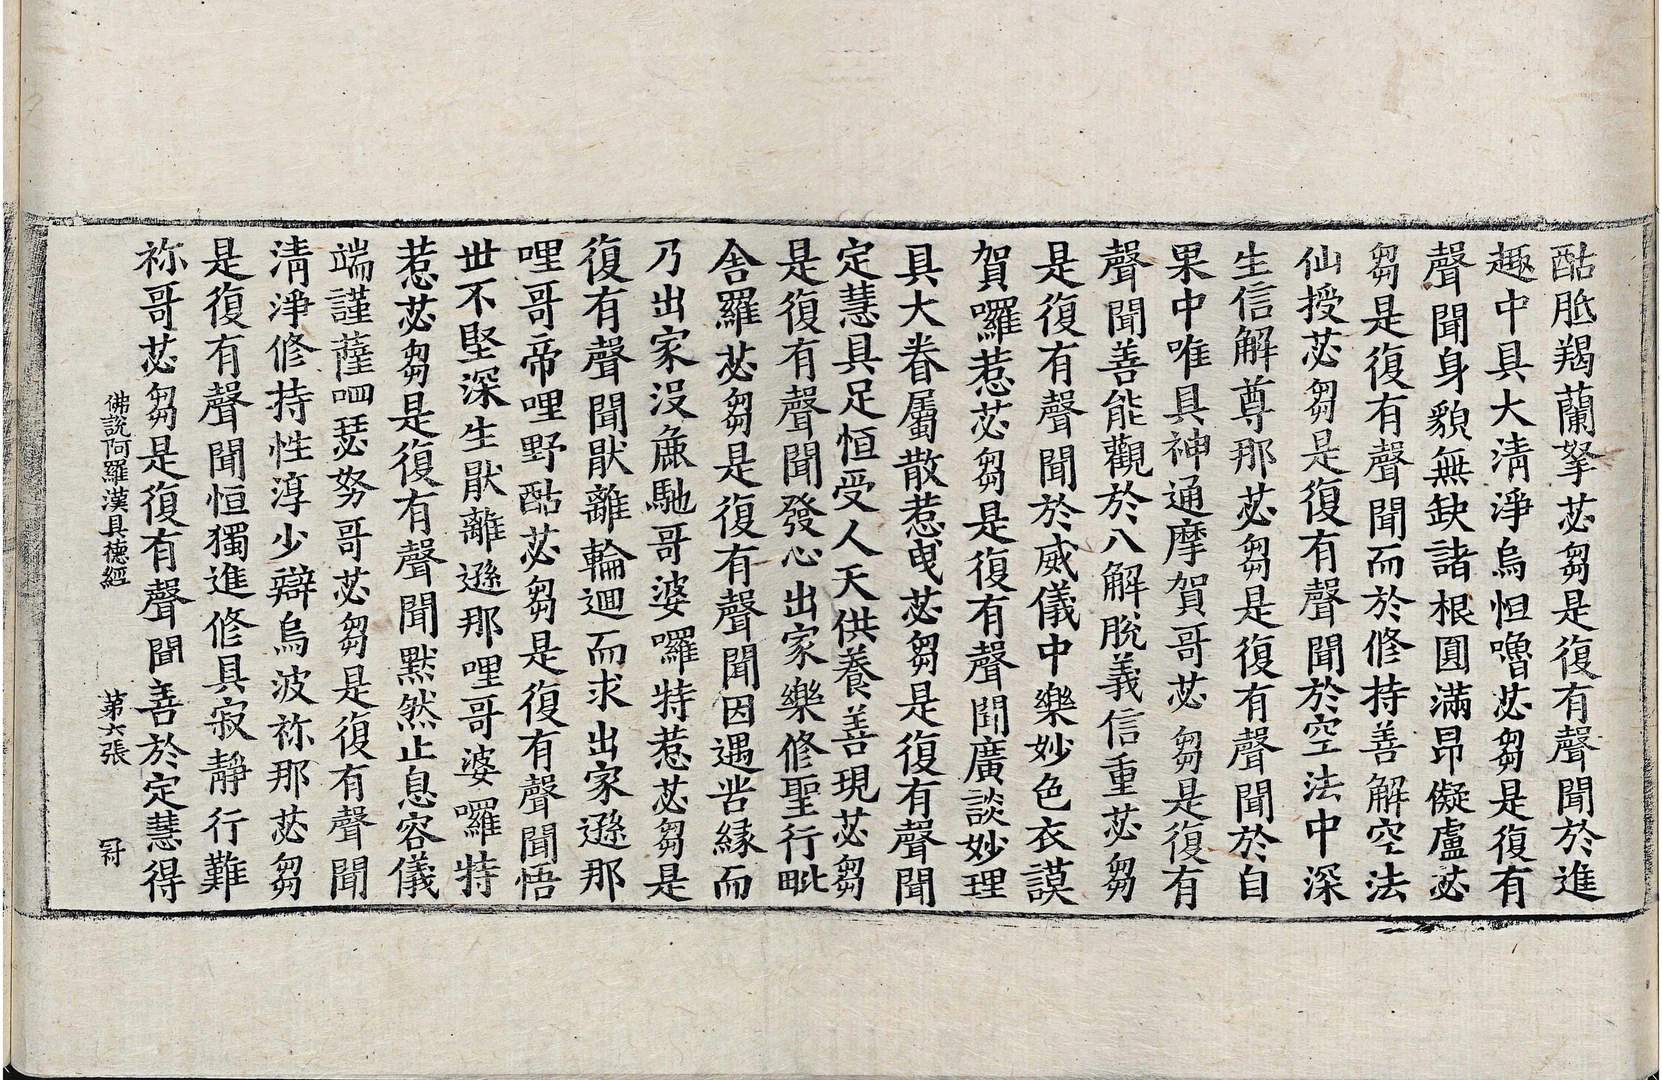 酤胝羯蘭拏苾芻是復有聲聞於進
趣中具大清淨烏怛嚕苾芻是復有
聲聞身貌無缺諸根圓滿昂儗盧苾
芻是復有聲聞而於修持善解空法
仙授苾芻是復有聲聞於空法中深
生信解尊那苾芻是復有聲聞於自
果中唯具神通摩賀哥苾芻是復有
聲聞善能觀於八解脫義信重苾芻
是復有聲聞於威儀中樂妙色衣謨
賀囉惹苾芻是復有聲聞廣談妙理
具大眷屬散惹曳苾芻是復有聲聞
定慧具足恒受人天供養善現苾芻
是復有聲聞發心出家樂修聖行毗
舍羅苾芻是復有聲聞因遇呰緣而
乃出家沒麁馳哥婆囉特惹苾芻是
復有聲聞厭離輪迴而求出家遜那
哩哥帝哩野酤苾芻是復有聲聞悟
世不堅深生厭離遜那哩哥婆囉特
惹苾芻是復有聲聞默然止息容儀
端謹薩呬瑟努哥苾芻是復有聲聞
清淨修持性淳少辯烏波祢那苾芻
是復有聲聞恒獨進修具寂靜行難
祢哥苾芻是復有聲聞善於定慧得
佛說阿羅漢具德經 第六張 冠